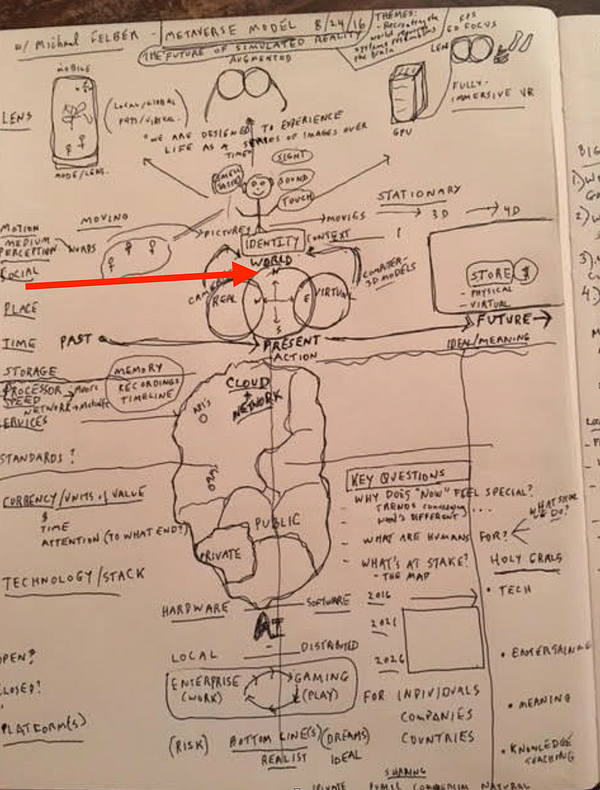 w/ Michael Felber - METAVERSE MODEL 8/24/16
THE FUTURE OF SIMULATED REALITY
THEMES:
- Recreating the
world
systems
the brain
MOBILE
AUGMENTED
LENS
GPS
FOCUS
LENS
(LOCAL/GLOBAL
MODE/LENS.
"WE ARE DESIGNED TO EXPERIENCE
LIFE AS A SERIES OF IMAGES OVER
TIME"
GPU
FULLY-
IMMERSIVE VR
SMELL
TASTE
SIGHT
SOUND
TOUCH
STATIONARY
3D → 4D
MOTION
MEDIUM
PERCEPTION
WORDS
MOVING
PICTURES
MOVIES
IDENTITY
CONTEXT
SOCIAL
WORLD
COMPUTER
3D MODELS
PLACE
REAL
N
W
E
S
VIRTUAL
STORE $
- PHYSICAL
- VIRTUAL
TIME
PAST
PRESENT
FUTURE →
ACTION
IDEAL/MEANING
STORAGE
PROCESSOR
SPEED → Moore
NETWORK → Metcalfe
SERVICES
MEMORY
RECORDINGS
TIMELINE
CLOUD
NETWORK
API's
STANDARDS?
CURRENCY/UNITS of VALUE
$
TIME
ATTENTION (TO WHAT END?)
PUBLIC
PRIVATE
KEY QUESTIONS
- WHY DOES "NOW" FEEL SPECIAL?
TRENDS CONVERGING...
WHAT'S DIFFERENT?
- WHAT ARE HUMANS FOR?
WHAT SHOULD
WE DO?
- WHAT'S AT STAKE?
- THE MAP
HOLY GRAILS
TECHNOLOGY/STACK
HARDWARE
SOFTWARE
AI
2016
2021
2026
• TECH
• ENTERTAINING
• MEANING
• KNOWLEDGE
TEACHING
LOCAL
DISTRIBUTED
OPEN?
CLOSED?
PLATFORM(S)
ENTERPRISE
(WORK)
GAMING
(PLAY)
FOR INDIVIDUALS
COMPANIES
COUNTRIES
(RISK)
BOTTOM LINE(S)
(DREAMS)
REALIST
IDEAL
SHARING
PRIVATE PUBLIC COMMERCIAL NATURAL
BIG
1)
2)
3)
4)